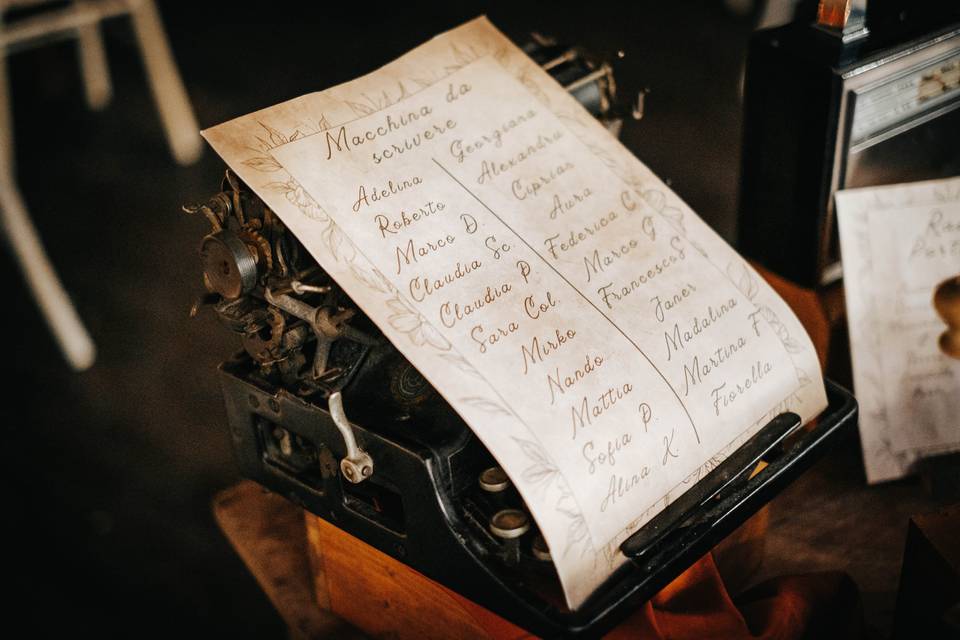 Macchina da
scrivere
Adelina
Roberto
Marco D.
Claudia Sc.
Claudia P.
Sara Col.
Mirko
Nando
Mattia
Sofia P.
Alina K
Georgiana
Alexandru
Ciprian
Aura
Federica C
Marco G
Francesca S
Janer
Madalina
Martina F
Fiorella